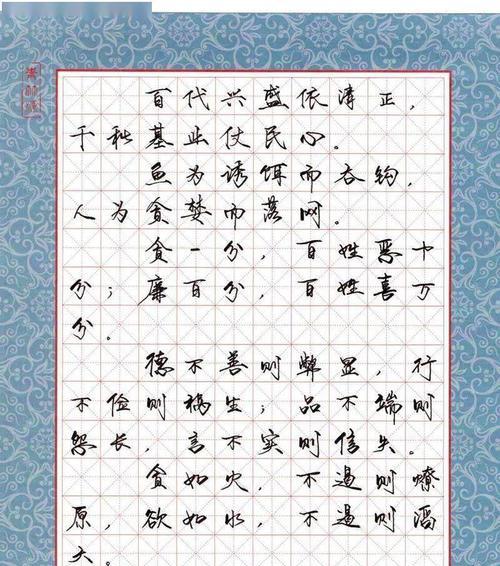 百代兴盛依清正，
千秋基业仗民心。
鱼为诱饵而吞钩，
人为贪婪而落网。
贪一分，百姓恶十
分；廉百分，百姓喜万
分。
德不善则弊显，行
不俭则祸生；品不端则
怨长，言不实则信失。
贪如火，不遏则燎
原，欲如水，不遏则滔
天。